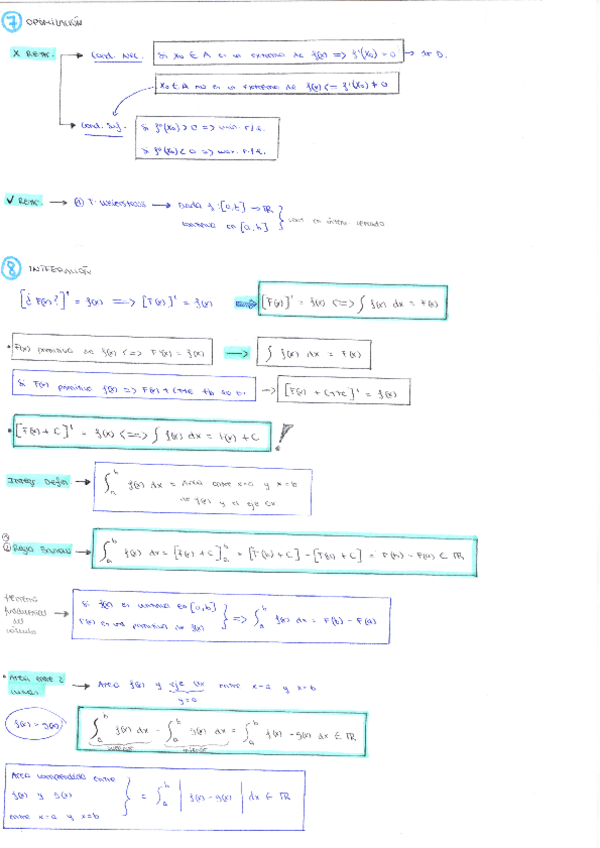 7 OPTIMIZACIÓN
X REST. Cond. Nec. Si x₀ ∈ A es un extremo de f(x) => f'(x₀) = 0
x₀ ∈ A no es un extremo de f(x) <= f'(x₀) ≠ 0
Cond. Suf. Si f''(x₀) > 0 =>
Si f''(x₀) < 0 =>
√ REST. → T. Weierstrass → dada f: [a,b] → R
continua en [a,b]
8 INTEGRACIÓN
[¿F(x)?]' = f(x) => [F(x)]' = f(x) [F(x)]' = f(x) <=> ∫ f(x) dx = F(x)
• F(x) primitiva de f(x) <=> F'(x) = f(x) → ∫ f(x) dx = F(x)
Si F(x) primitiva f(x) => F(x) + cte → [F(x) + cte]' = f(x)
• [F(x) + C]' = f(x) <=> ∫ f(x) dx = F(x) + C !
Integ. Defin → ∫ₐᵇ f(x) dx = Área entre x=a y x=b
de f(x) y el eje OX
Regla Barrow → ∫ₐᵇ f(x) dx = [F(x) + C]ₐᵇ = [F(b) + C] - [F(a) + C] = F(b) - F(a) ∈ R
teorema
fundamental
del
cálculo
Si f(x) es continua en [a,b]
F(x) es una primitiva de f(x) => ∫ₐᵇ f(x) dx = F(b) - F(a)
• Área entre 2
curvas → Área f(x) y eje OX entre x=a y x=b
y=0
f(x) > g(x) ∫ₐᵇ f(x) dx - ∫ₐᵇ g(x) dx = ∫ₐᵇ f(x) - g(x) dx ∈ R
superior inferior
Área comprendida entre
f(x) y g(x) = ∫ₐᵇ |f(x) - g(x)| dx ∈ R
entre x=a y x=b